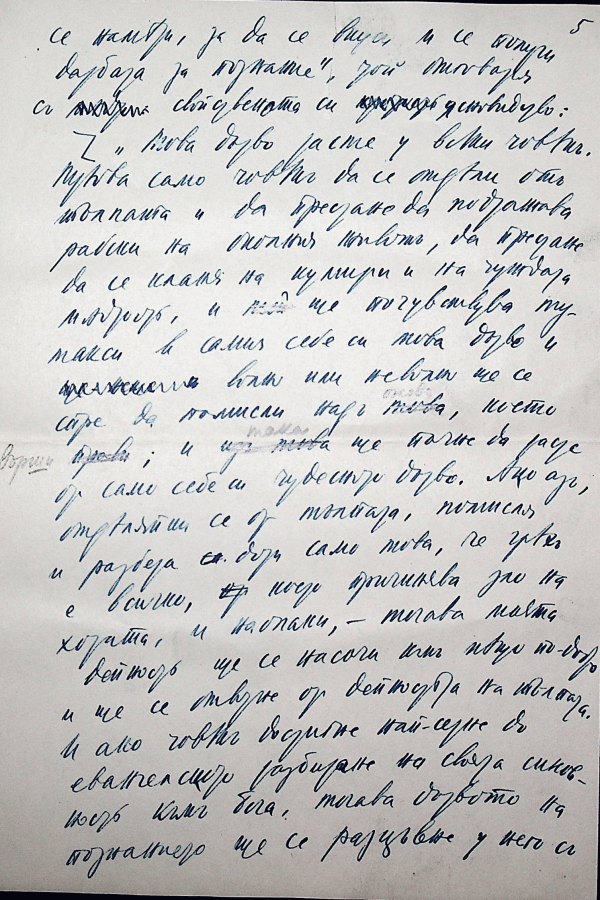 5
се намѣри, за да се вкуси и се получи
дарбата за познание", той отговаря
съ свойствената си ясновидство:
"Това дърво расте у всѣки човѣкъ.
Трѣбва само човѣкъ да се отдѣли отъ
тълпата и да престане да подражава
рабски на околния животъ, да престане
да се кланя на кумири и на чуждата
мѫдрость, и ще почувствува ту-
такси в самия себе си това дърво и
волю или неволю ще се
спре да помисли надъ онова, което
върши; и така ще почне да расте
от само себе си чудесното дърво. Ако азъ,
отдѣляйки се от тълпата, помисля
и разбера дори само това, че грѣхъ
е всичко, което причинява зло на
хората, и наопаки, – тогава моята
дейность ще се насочи къмъ нѣщо по-добро
и ще се отвърне от дейностьта на тълпата.
И ако човѣкъ достигне най-сетне до
евангелското разбиране на своята синов-
ность къмъ Бога, тогава дървото на
познанието ще се разцъвне у него съ